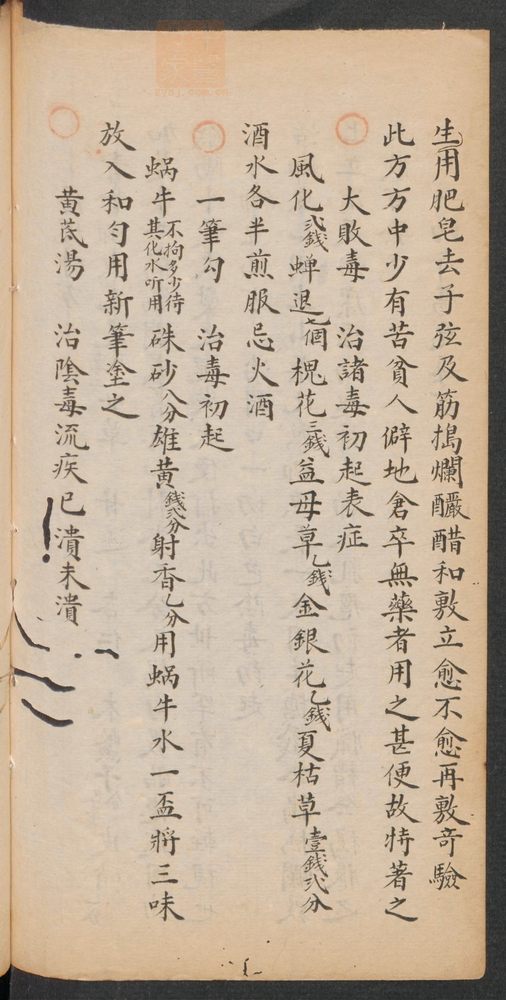 生用肥皂去子弦及筋搗爛釅醋和敷立愈不愈再敷奇驗
此方方中少有苦貧人僻地倉卒無藥者用之甚便故特著之
大敗毒 治諸毒初起表症
風化弍錢蝉退七個槐花三錢益母草乙錢金銀花乙錢夏枯草壹錢弍分
酒水各半煎服忌火酒
一筆勾 治毒初起
蝸牛不拘多少待其化水听用硃砂八分雄黄錢弍分射香乙分用蝸牛水一盃將三味
放入和勻用新筆塗之
黄芪湯 治陰毒流疾已潰未潰